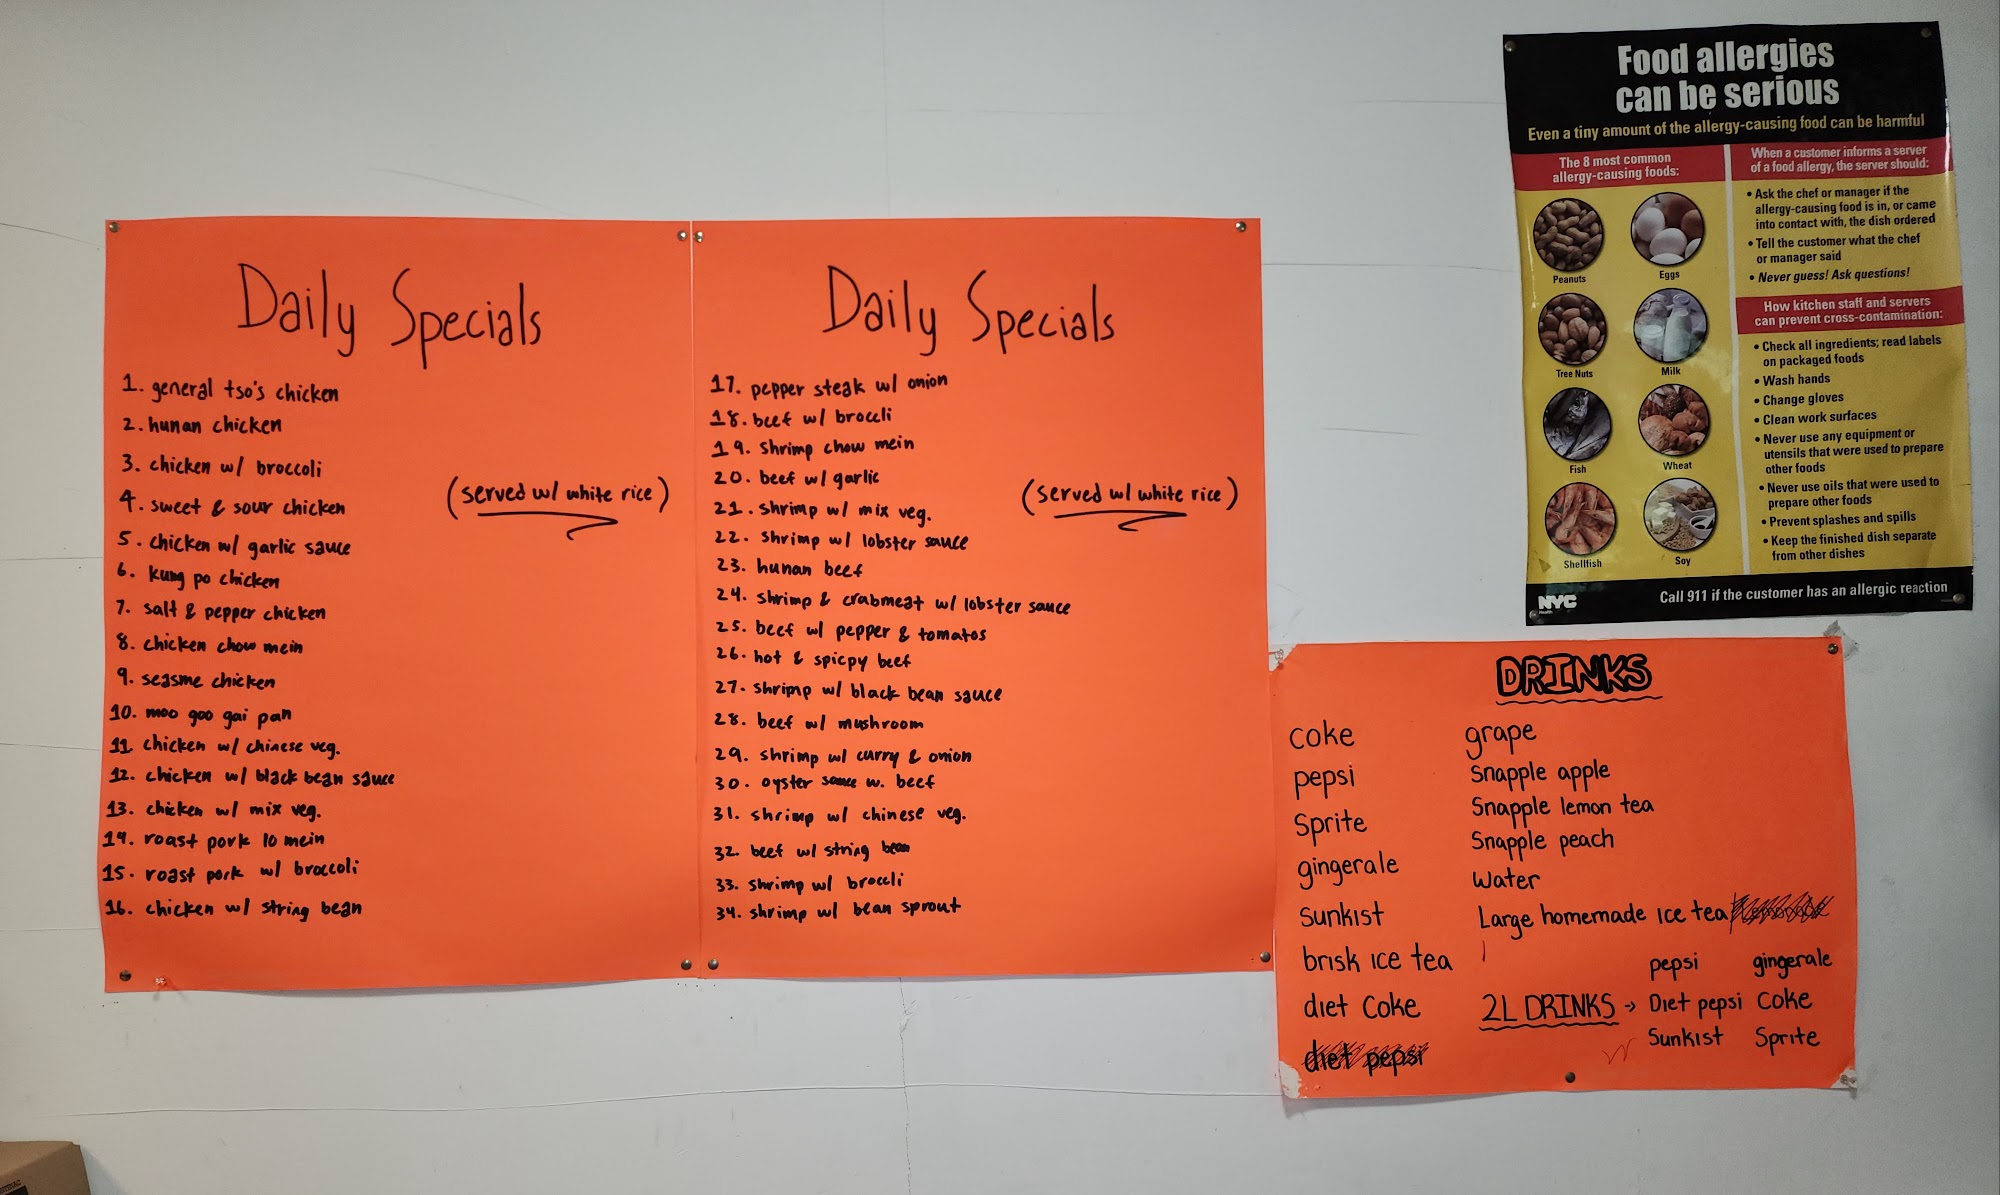 Daily Specials
1. general tso's chicken
2. hunan chicken
3. chicken w/ broccoli
4. sweet & sour chicken
5. chicken w/ garlic sauce
6. kung po chicken
7. salt & pepper chicken
8. chicken chow mein
9. seasme chicken
10. moo goo gai pan
11. chicken w/ chinese veg.
12. chicken w/ black bean sauce
13. chicken w/ mix veg.
14. roast pork lo mein
15. roast pork w/ broccoli
16. chicken w/ string bean
(served w/ white rice)
Daily Specials
17. pepper steak w/ onion
18. beef w/ broccli
19. shrimp chow mein
20. beef w/ garlic
21. shrimp w/ mix veg.
22. shrimp w/ lobster sauce
23. hunan beef
24. shrimp & crabmeat w/ lobster sauce
25. beef w/ pepper & tomatos
26. hot & spicpy beef
27. shrimp w/ black bean sauce
28. beef w/ mushroom
29. shrimp w/ curry & onion
30. oyster sauce w. beef
31. shrimp w/ chinese veg.
32. beef w/ string bean
33. shrimp w/ broccli
34. shrimp w/ bean sprout
(served w/ white rice)
Food allergies
can be serious
Even a tiny amount of the allergy-causing food can be harmful
The 8 most common
allergy-causing foods:
Peanuts
Eggs
Tree Nuts
Milk
Fish
Wheat
Shellfish
Soy
When a customer informs a server
of a food allergy, the server should:
• Ask the chef or manager if the
allergy-causing food is in, or came
into contact with, the dish ordered
• Tell the customer what the chef
or manager said
• Never guess! Ask questions!
How kitchen staff and servers
can prevent cross-contamination:
• Check all ingredients; read labels
on packaged foods
• Wash hands
• Change gloves
• Clean work surfaces
• Never use any equipment or
utensils that were used to prepare
other foods
• Never use oils that were used to
prepare other foods
• Prevent splashes and spills
• Keep the finished dish separate
from other dishes
NYC
Health
Call 911 if the customer has an allergic reaction
DRINKS
coke
pepsi
Sprite
gingerale
sunkist
brisk ice tea
diet coke
diet pepsi
grape
Snapple apple
Snapple lemon tea
Snapple peach
Water
Large homemade ice tea
2L DRINKS →
pepsi gingerale
Diet pepsi Coke
Sunkist Sprite